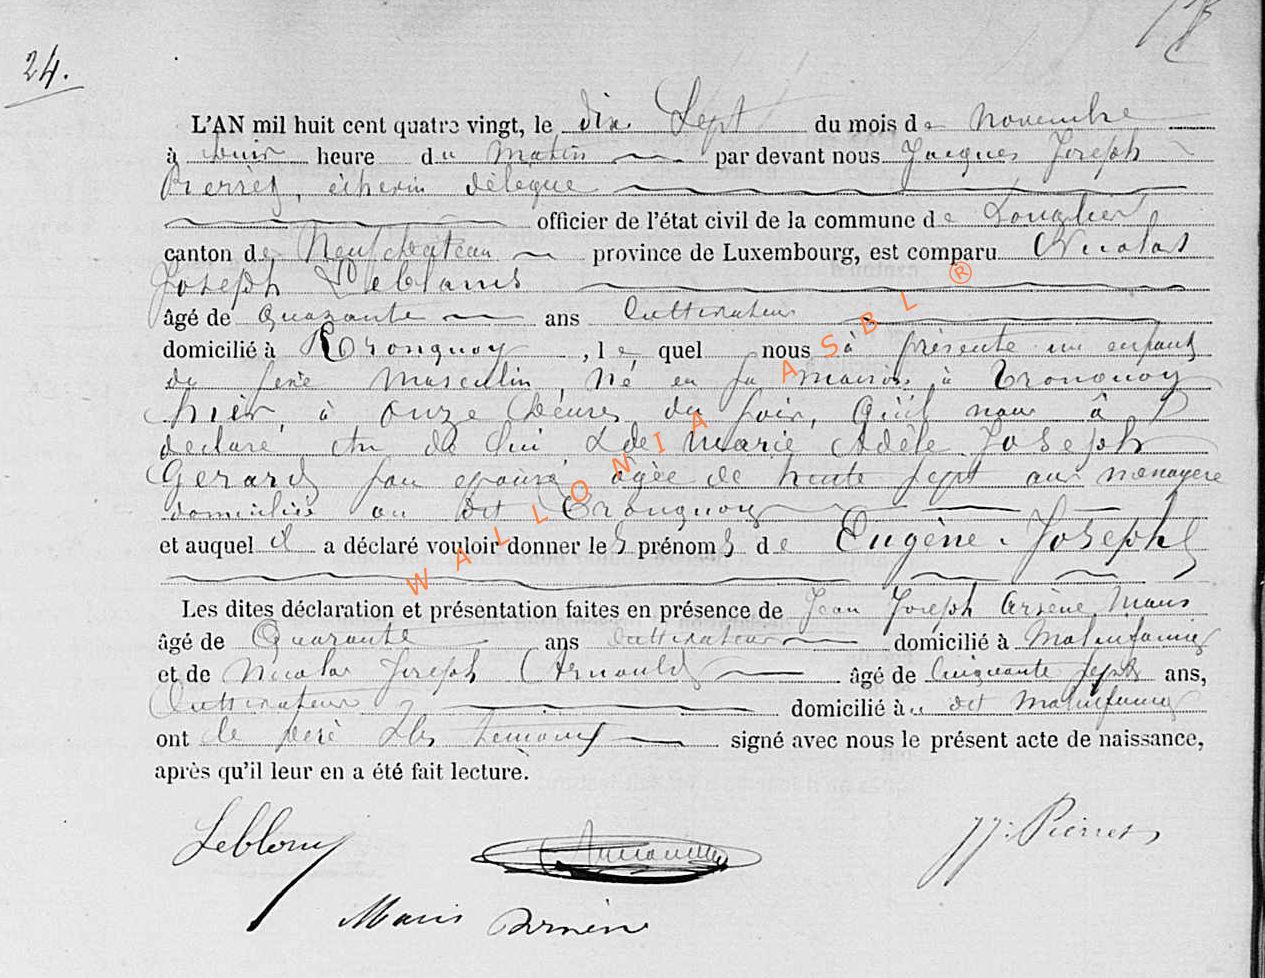 24.
L'AN mil huit cent quatre vingt, le dix Sept du mois de novembre
à heure du Matin par devant nous Jacques Joseph
Pierres, échevin délégué
officier de l'état civil de la commune de Longlier
canton de Neufchâteau province de Luxembourg, est comparu Nicolas
Joseph Leblanc
âgé de quarante ans Cultivateur
domicilié à Tronquoy, le quel nous à présenté un enfant
du sexe Masculin, Né en sa maison à Tronquoy
hier, à onze heures du soir, qu'il nous à
déclaré de lui & de Marie Adèle Joseph
Gerard son épouse âgée de trente sept ans ménagère
domiciliée au dit Tronquoy
et auquel il a déclaré vouloir donner les prénoms de Eugène Joseph
Les dites déclaration et présentation faites en présence de Jean Joseph Arsène Maus
âgé de Quarante ans Cultivateur domicilié à Molinfaing
et de Nicolas Joseph Arnould âgé de Cinquante sept ans,
Cultivateur domicilié au dit Molinfaing
ont le père & les témoins signé avec nous le présent acte de naissance,
après qu'il leur en a été fait lecture.
Leblanc
J.J. Pierres
Maus Arsène
WALLONIA ASBL ®